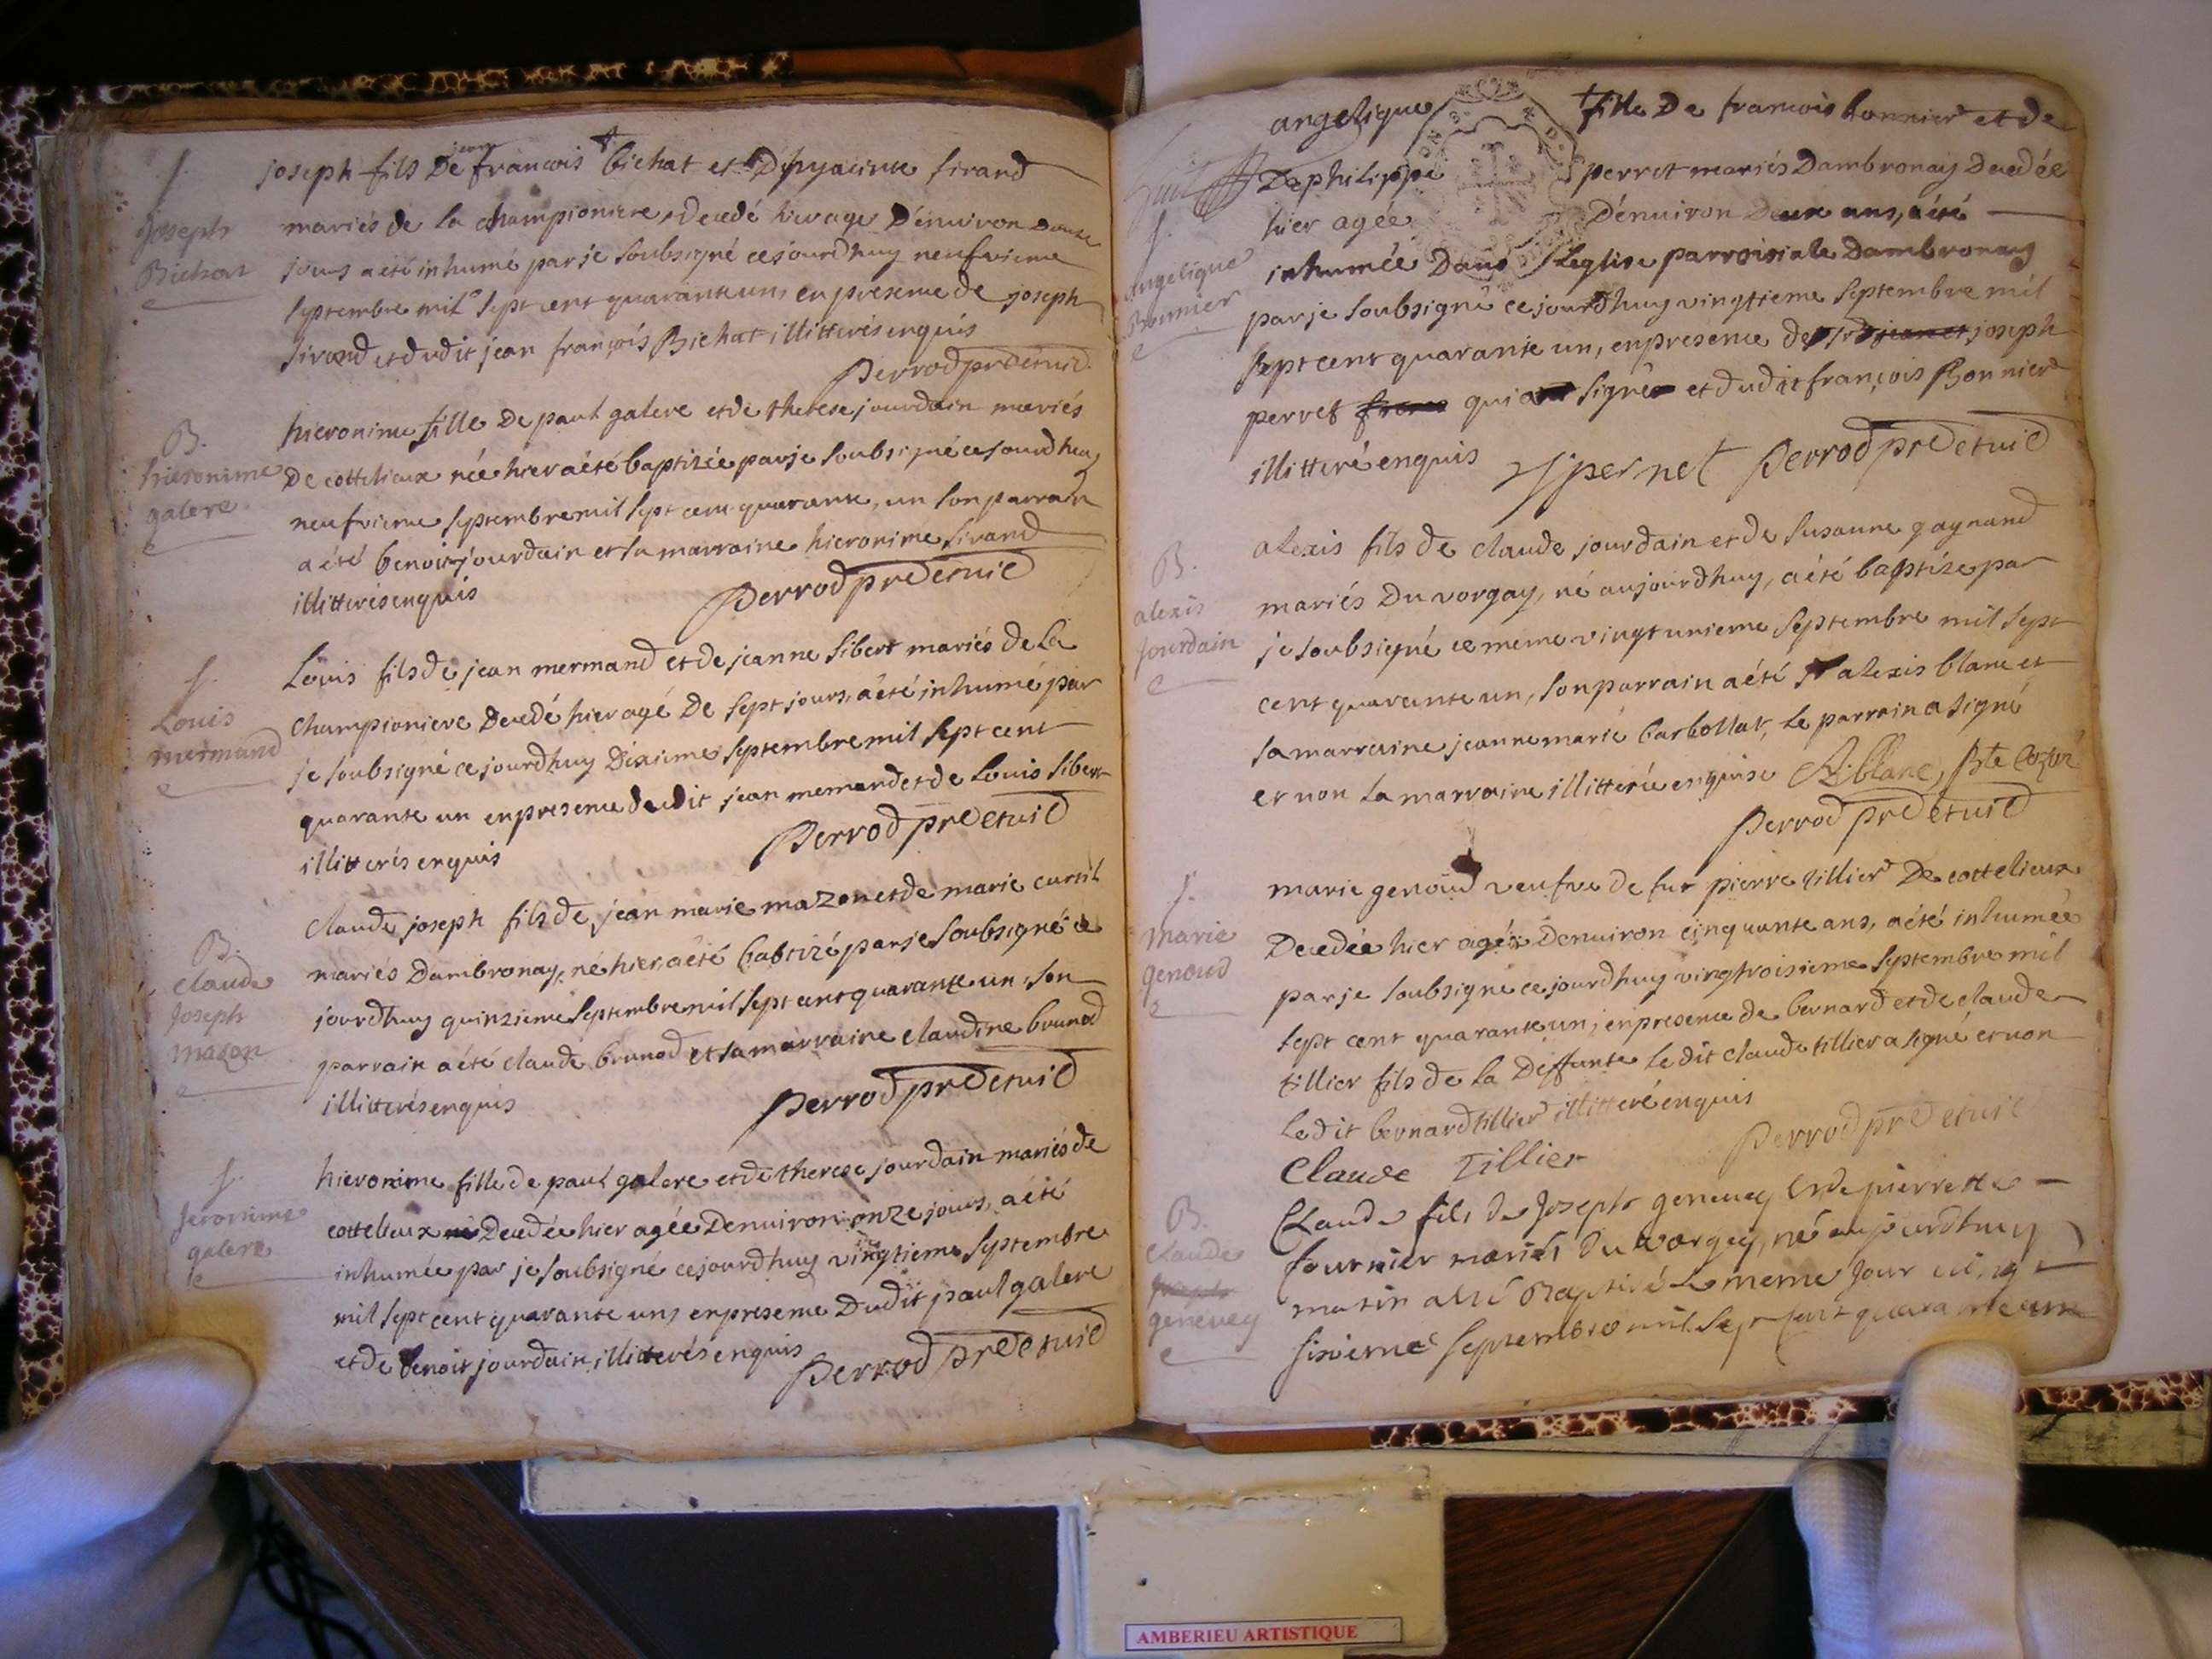 S.
Joseph
Bichat
joseph fils De jean francois Bichat et D'hyacinte sirand
mariés de la championiere, Decedé hier agé D'environ Douze
jours a été inhumé par je soubsigné ce jourd'huy neufvieme
septembre mil sept cent quarante un, en presence de joseph
sirand et dudit jean françois Bichat illitterés enquis
Perrod prê et vic
B.
hieronime
galere
hieronime fille De paul galere et de therese jourdain mariés
De cottelieux née hier a été baptizée par je soubsigné ce jourdhuy
neufvieme septembre mil sept cent quarante, un son parrain
a été benoit jourdain et sa marraine hieronime sirand
illitterés enquis
Perrod prê et vic
S.
Louis
mermand
Louis fils de jean mermand et de jeanne sibert mariés de La
championiere Decedé hier agé De sept jours, a été inhumé par
je soubsigné ce jourdhuy Dixieme septembre mil sept cent
quarante un en presence dudit jean memand et de Louis sibert
illitterés enquis
Perrod prê et vic
B.
claude
Joseph
mazon
Claude joseph fils de jean marie mazon et de marie curtil
mariés Dambronay, né hier, a été babtizé par je soubsigné ce
jourdhuy quinzieme septembre mil sept cent quarante un, son
parrain a été claude brunod et sa marraine claudine brunod
illitterés enquis
Perrod prê et vic
S.
Jeronime
galere
hieronime fille de paul galere et de therese jourdain mariés de
cottelieux Decedée hier agée Denviron onze jours, a été
inhumée par je soubsigné ce jourdhuy vingtieme septembre
mil sept cent quarante un, en presence Dudit paul galere
et de benoit jourdain, illitterés enquis
Perrod prê et vic
S.
Angelique
Bonnier
angelique fille De francois bonnier et de
De philippe perret mariés Dambronay Decedée
hier agée D'environ Deux ans, a été
inhumée Dans L'eglise parroisiale Dambronay
par je soubsigné ce jourdhuy vingtieme septembre mil
sept cent quarante un, en presence de joseph
perret qui a signé et dudit françois Bonnier
illitteré enquis
J pernet Perrod prê et vic
B.
alexis
jourdain
alexis fils de claude jourdain et de susanne gaynand
mariés Du vorgay, né aujourdhuy, a été baptizé par
je soubsigné ce meme vingt unieme septembre mil sept
cent quarante un, son parrain a été sr alexis blanc et
sa marraine jeanne marie barbollat, le parrain a signé
et non la marraine illitterée enquise A. blanc,
Perrod prê et vic
S.
Marie
genoud
marie genoud veufve de feu pierre tillier De cottelieux
Decedée hier agée Denviron cinquante ans, a été inhumée
par je soubsigné ce jourdhuy vingtroisieme septembre mil
sept cent quarante un, en presence de bernard et de claude
tillier fils de la Deffunte ledit claude tillier a signé et non
ledit bernard tillier illitteré enquis
Perrod prê et vic
Claude Tillier
B.
claude
genevey
Claude fils de Joseph genevey Et de pierrette
fournier mariés du vorgey, né aujourdhuy
matin a été Baptizé Le meme Jour vingt
sixieme septembre mil sept cent quarante un
AMBERIEU ARTISTIQUE